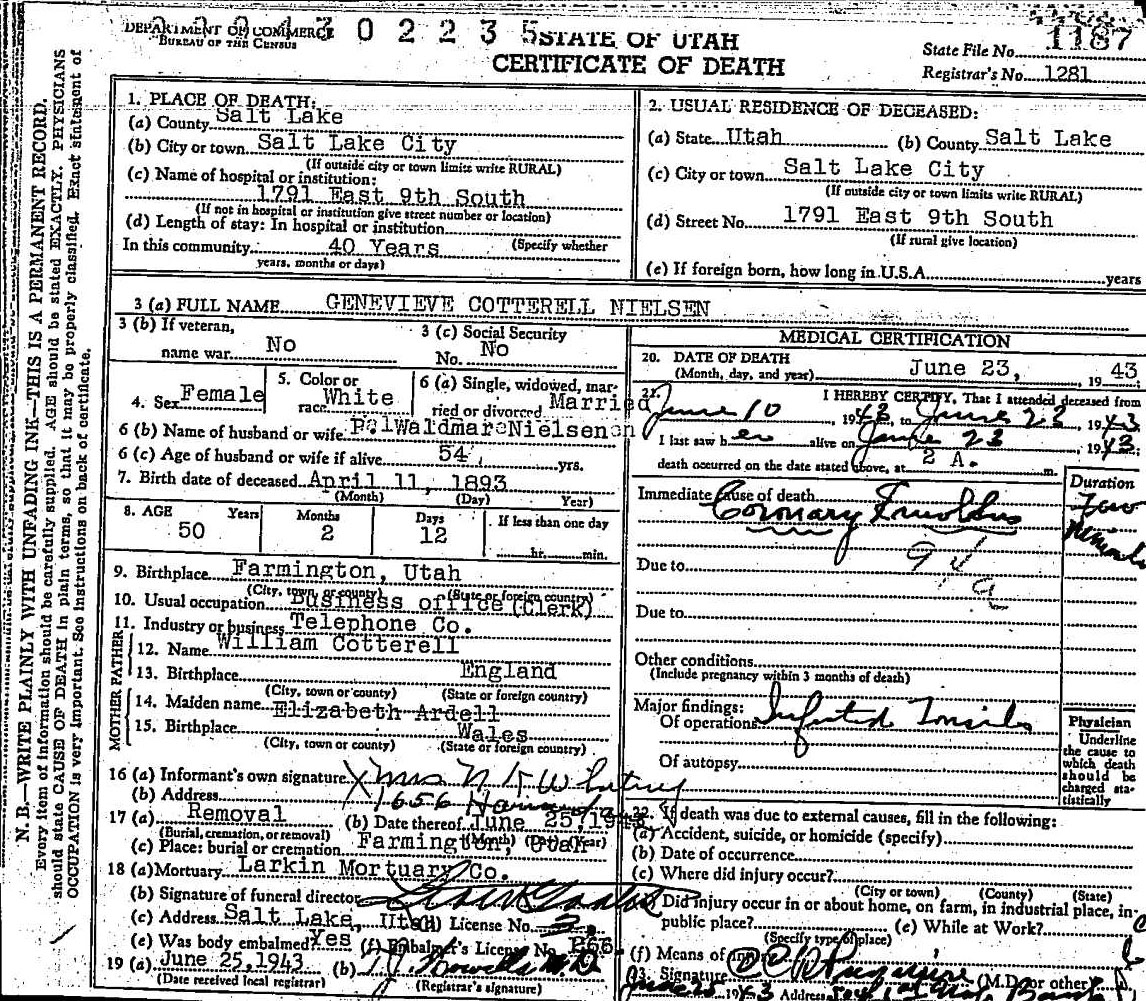 DEPARTMENT OF COMMERCE
BUREAU OF THE CENSUS
4 3 0 2 2 3 5
STATE OF UTAH
CERTIFICATE OF DEATH
State File No. 1187
Registrar's No. 1281
N.B.—WRITE PLAINLY WITH UNFADING INK—THIS IS A PERMANENT RECORD.
Every item of information should be carefully supplied. AGE should be stated EXACTLY. PHYSICIANS
should state CAUSE OF DEATH in plain terms, so that it may be properly classified. Exact statement of
OCCUPATION is very important. See instructions on back of certificate.
1. PLACE OF DEATH:
(a) County Salt Lake
(b) City or town Salt Lake City
(If outside city or town limits write RURAL)
(c) Name of hospital or institution:
1791 East 9th South
(If not in hospital or institution give street number or location)
(d) Length of stay: In hospital or institution
In this community 40 Years (Specify whether
years, months or days)
2. USUAL RESIDENCE OF DECEASED:
(a) State Utah (b) County Salt Lake
(c) City or town Salt Lake City
(If outside city or town limits write RURAL)
(d) Street No. 1791 East 9th South
(If rural give location)
(e) If foreign born, how long in U.S.A. years
3 (a) FULL NAME GENEVIEVE COTTERELL NIELSEN
3 (b) If veteran,
name war No
3 (c) Social Security
No. No
4. Sex Female
5. Color or
race White
6 (a) Single, widowed, mar-
ried or divorced Married
6 (b) Name of husband or wife Waldmar Nielsen
6 (c) Age of husband or wife if alive 54 yrs.
7. Birth date of deceased April 11, 1893
(Month) (Day) Year)
8. AGE Years Months Days If less than one day
50 2 12 hr. min.
9. Birthplace Farmington, Utah
(City, town, or county) (State or foreign country)
10. Usual occupation Business office (Clerk)
11. Industry or business Telephone Co.
FATHER
12. Name William Cotterell
13. Birthplace England
(City, town or county) (State or foreign country)
MOTHER
14. Maiden name Elizabeth Ardell
15. Birthplace Wales
(City, town or county) (State or foreign country)
16 (a) Informant's own signature Mrs N
(b) Address 1656
17 (a) Removal (b) Date thereof June 25, 1943
(Burial, cremation, or removal) (Month) (Day) (Year)
(c) Place: burial or cremation Farmington, Utah
18 (a) Mortuary Larkin Mortuary Co.
(b) Signature of funeral director
(c) Address Salt Lake, Utah (d) License No. 3
(e) Was body embalmed? Yes (f) Embalmer's License No.
19 (a) June 25, 1943 (b) M.D.
(Date received local registrar) (Registrar's signature)
MEDICAL CERTIFICATION
20. DATE OF DEATH
(Month, day, and year) June 23, , 19 43
21. I HEREBY CERTIFY, That I attended deceased from
June 10 , 1943, to June 23 , 1943
I last saw h er alive on June 23 , 1943;
death occurred on the date stated above, at 2 A. m.
Duration
Immediate cause of death Coronary Embolus
Few
Minutes
94a
Due to
Due to
Other conditions
(Include pregnancy within 3 months of death)
Major findings:
Of operations Infected Tonsils
Of autopsy
Physician
Underline
the cause to
which death
should be
charged sta-
tistically
22. If death was due to external causes, fill in the following:
(a) Accident, suicide, or homicide (specify)
(b) Date of occurrence
(c) Where did injury occur?
(City or town) (County) (State)
Did injury occur in or about home, on farm, in industrial place, in
public place? (e) While at Work?
(Specify type of place)
(f) Means of injury
23. Signature (M.D. or other)
June 25 1943 Address